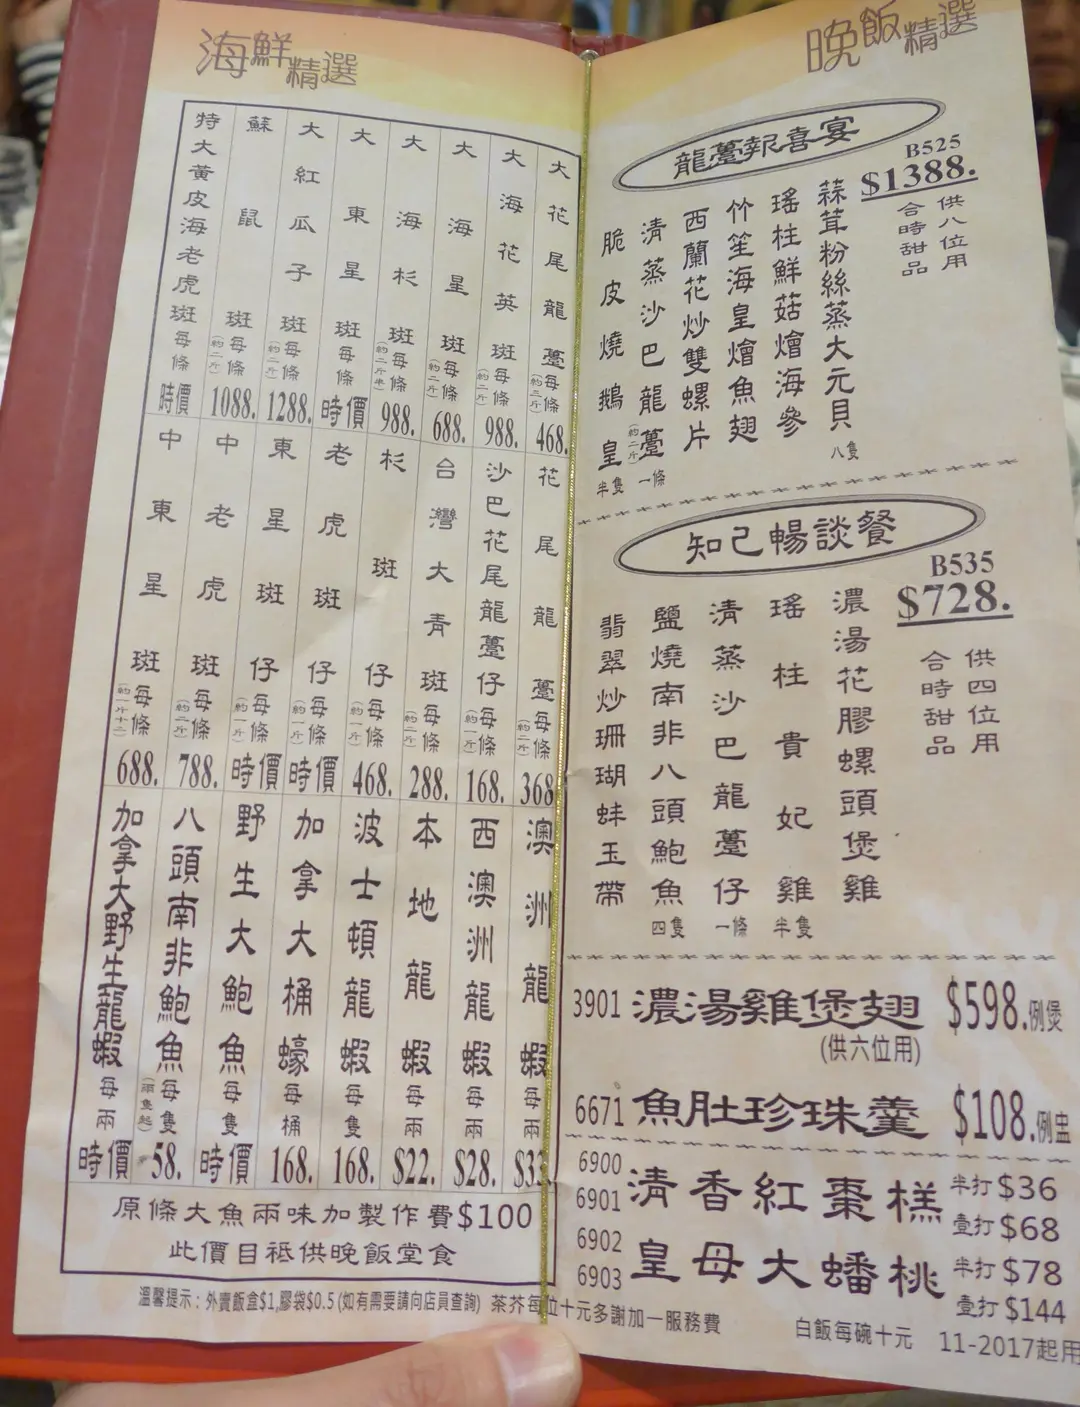 海鮮精選
大花尾龍躉每條(約三斤) 468.
大海花英斑每條(約二斤) 988.
大海星斑每條(約二斤) 688.
大海杉斑每條(約二斤半) 988.
大東星斑每條 時價
大紅瓜子斑每條(約二斤) 1288.
蘇鼠斑每條(約二斤) 1088.
特大黃皮海老虎斑每條 時價
花尾龍躉每條(約二斤) 368
沙巴花尾龍躉仔每條(約一斤) 168.
台灣大青斑每條(約二斤) 288.
杉斑仔每條(約一斤) 468.
老虎斑仔每條(約一斤) 時價
東星斑仔每條(約一斤) 時價
中老虎斑每條(約二斤) 788.
中東星斑每條(約一斤十二) 688.
澳洲龍蝦每兩
西澳洲龍蝦每兩 $28.
本地龍蝦每兩 $22.
波士頓龍蝦每隻 168.
加拿大桶蠔每桶 168.
野生大鮑魚每隻 時價
八頭南非鮑魚每隻(兩隻起) 58.
加拿大野生龍蝦每兩 時價
原條大魚兩味加製作費$100
此價目祗供晚飯堂食
溫馨提示：外賣飯盒$1,膠袋$0.5(如有需要請向店員查詢)
晚飯精選
龍躉報喜宴
B525
$1388.
供八位用
合時甜品
蒜茸粉絲蒸大元貝八隻
瑤柱鮮菇燴海參
竹笙海皇燴魚翅
西蘭花炒雙螺片
清蒸沙巴龍躉(約二斤)一條
脆皮燒鵝皇半隻
知己暢談餐
B535
$728.
供四位用
合時甜品
濃湯花膠螺頭煲雞
瑤柱貴妃雞半隻
清蒸沙巴龍躉仔一條
鹽燒南非八頭鮑魚四隻
翡翠炒珊瑚蚌玉帶
3901 濃湯雞煲翅 $598.例煲
(供六位用)
6671 魚肚珍珠羹 $108.例盅
6900
6901 清香紅棗糕 半打$36 壹打$68
6902
6903 皇母大蟠桃 半打$78 壹打$144
茶芥每位十元多謝加一服務費
白飯每碗十元 11-2017起用